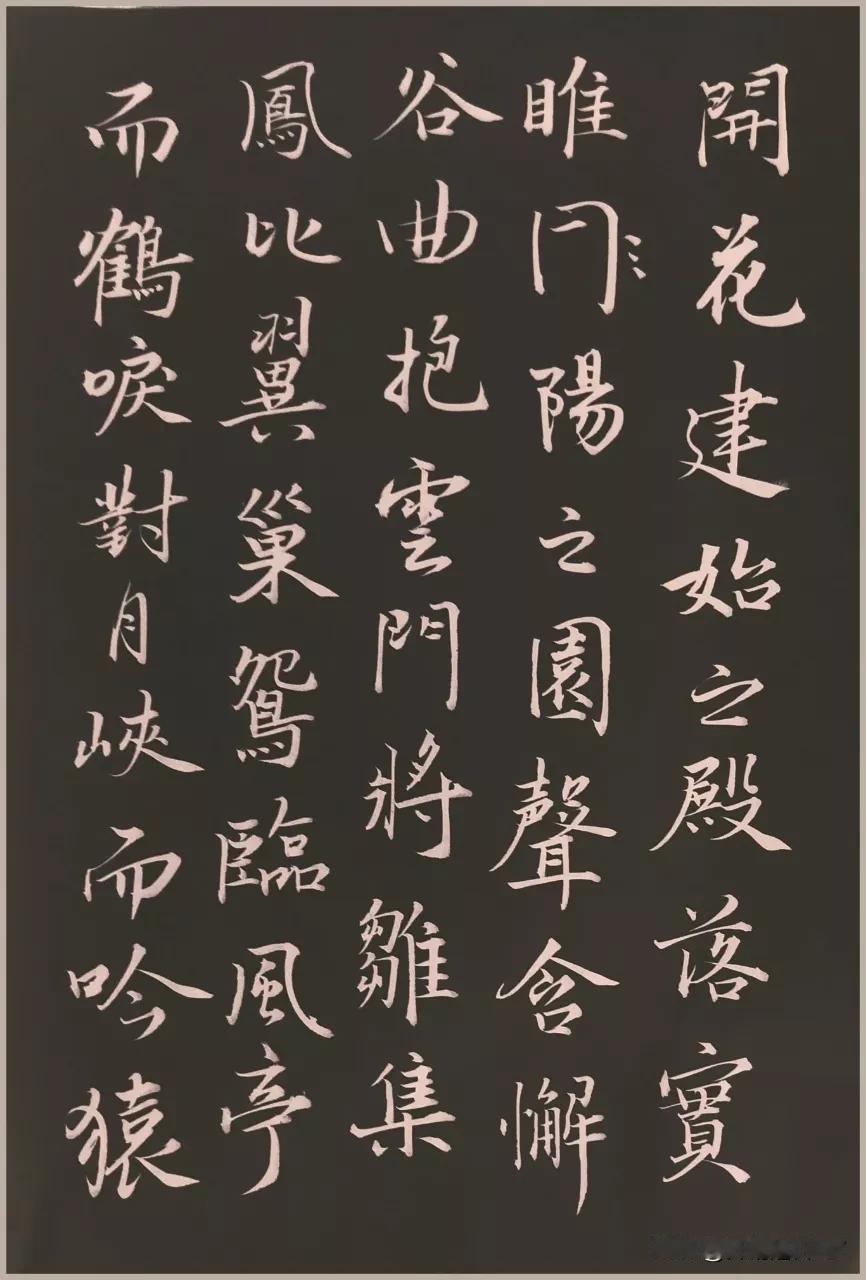 開花建始之殿落實
睢門陽之園聲含懈
谷曲抱雲門將雛集
鳳比翼巢鴛臨風亭
而鶴唳對月峽而吟猿